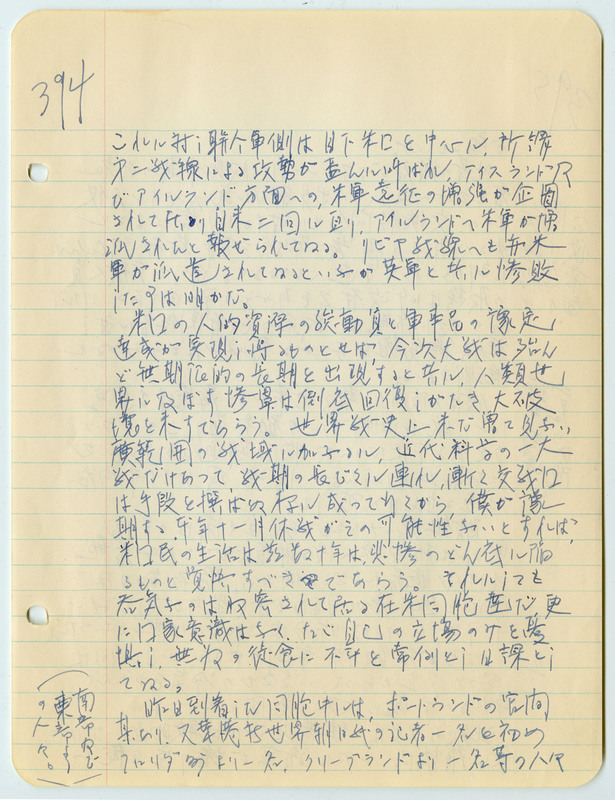 394
これに対し聯合軍側は目下米口を中心に、所謂
第二戦線による攻勢が盛んに叫ばれ、アイスランド及
びアイルランド方面への、米軍遠征の増強が企図
されて居り自来二回に亘り、アイルランドへ米軍が増
派されたと報ぜられてゐる。リビヤ戦線へも亦米
軍が派遣されてゐるといふが英軍と共に惨敗
した事は明かだ。
米口の人的資源の総動員と軍事品の豫定
達成が実現し得るものとせば、今次大戦は殆ん
ど無期限的の長期を出現すると共に、人類世
界に及ぼす惨禍は到底回復しがたき大破
境を来すであらう。世界戦史上未だ曽て見ない
廣範囲の戦域に加ふるに、近代科学の一大
戦だけあつて、戦期の長びくに連れ、漸く交戦口
は手段を撰ばぬ様に成って行くから、僕が豫
期する、本年十一月休戦がその可能性ないとすれば、
米口民の生活は茲数十年は、悲惨のどん底に陥
るものと覚悟すべきであらう。それにしても
呑気なのは収容されて居る在米同胞達だ、更
に口家意識はなく、ただ自己の立場のみを
し、無為の徒食に不平を常例とし日課とし
てゐる。
昨日到着した同胞中には、ポートランドの
又華港新世界朝日紙の記者一名を初め
フロリダ州より一名、クリーブランドより一名等の人々
(南部及び
東部より
の人々。)